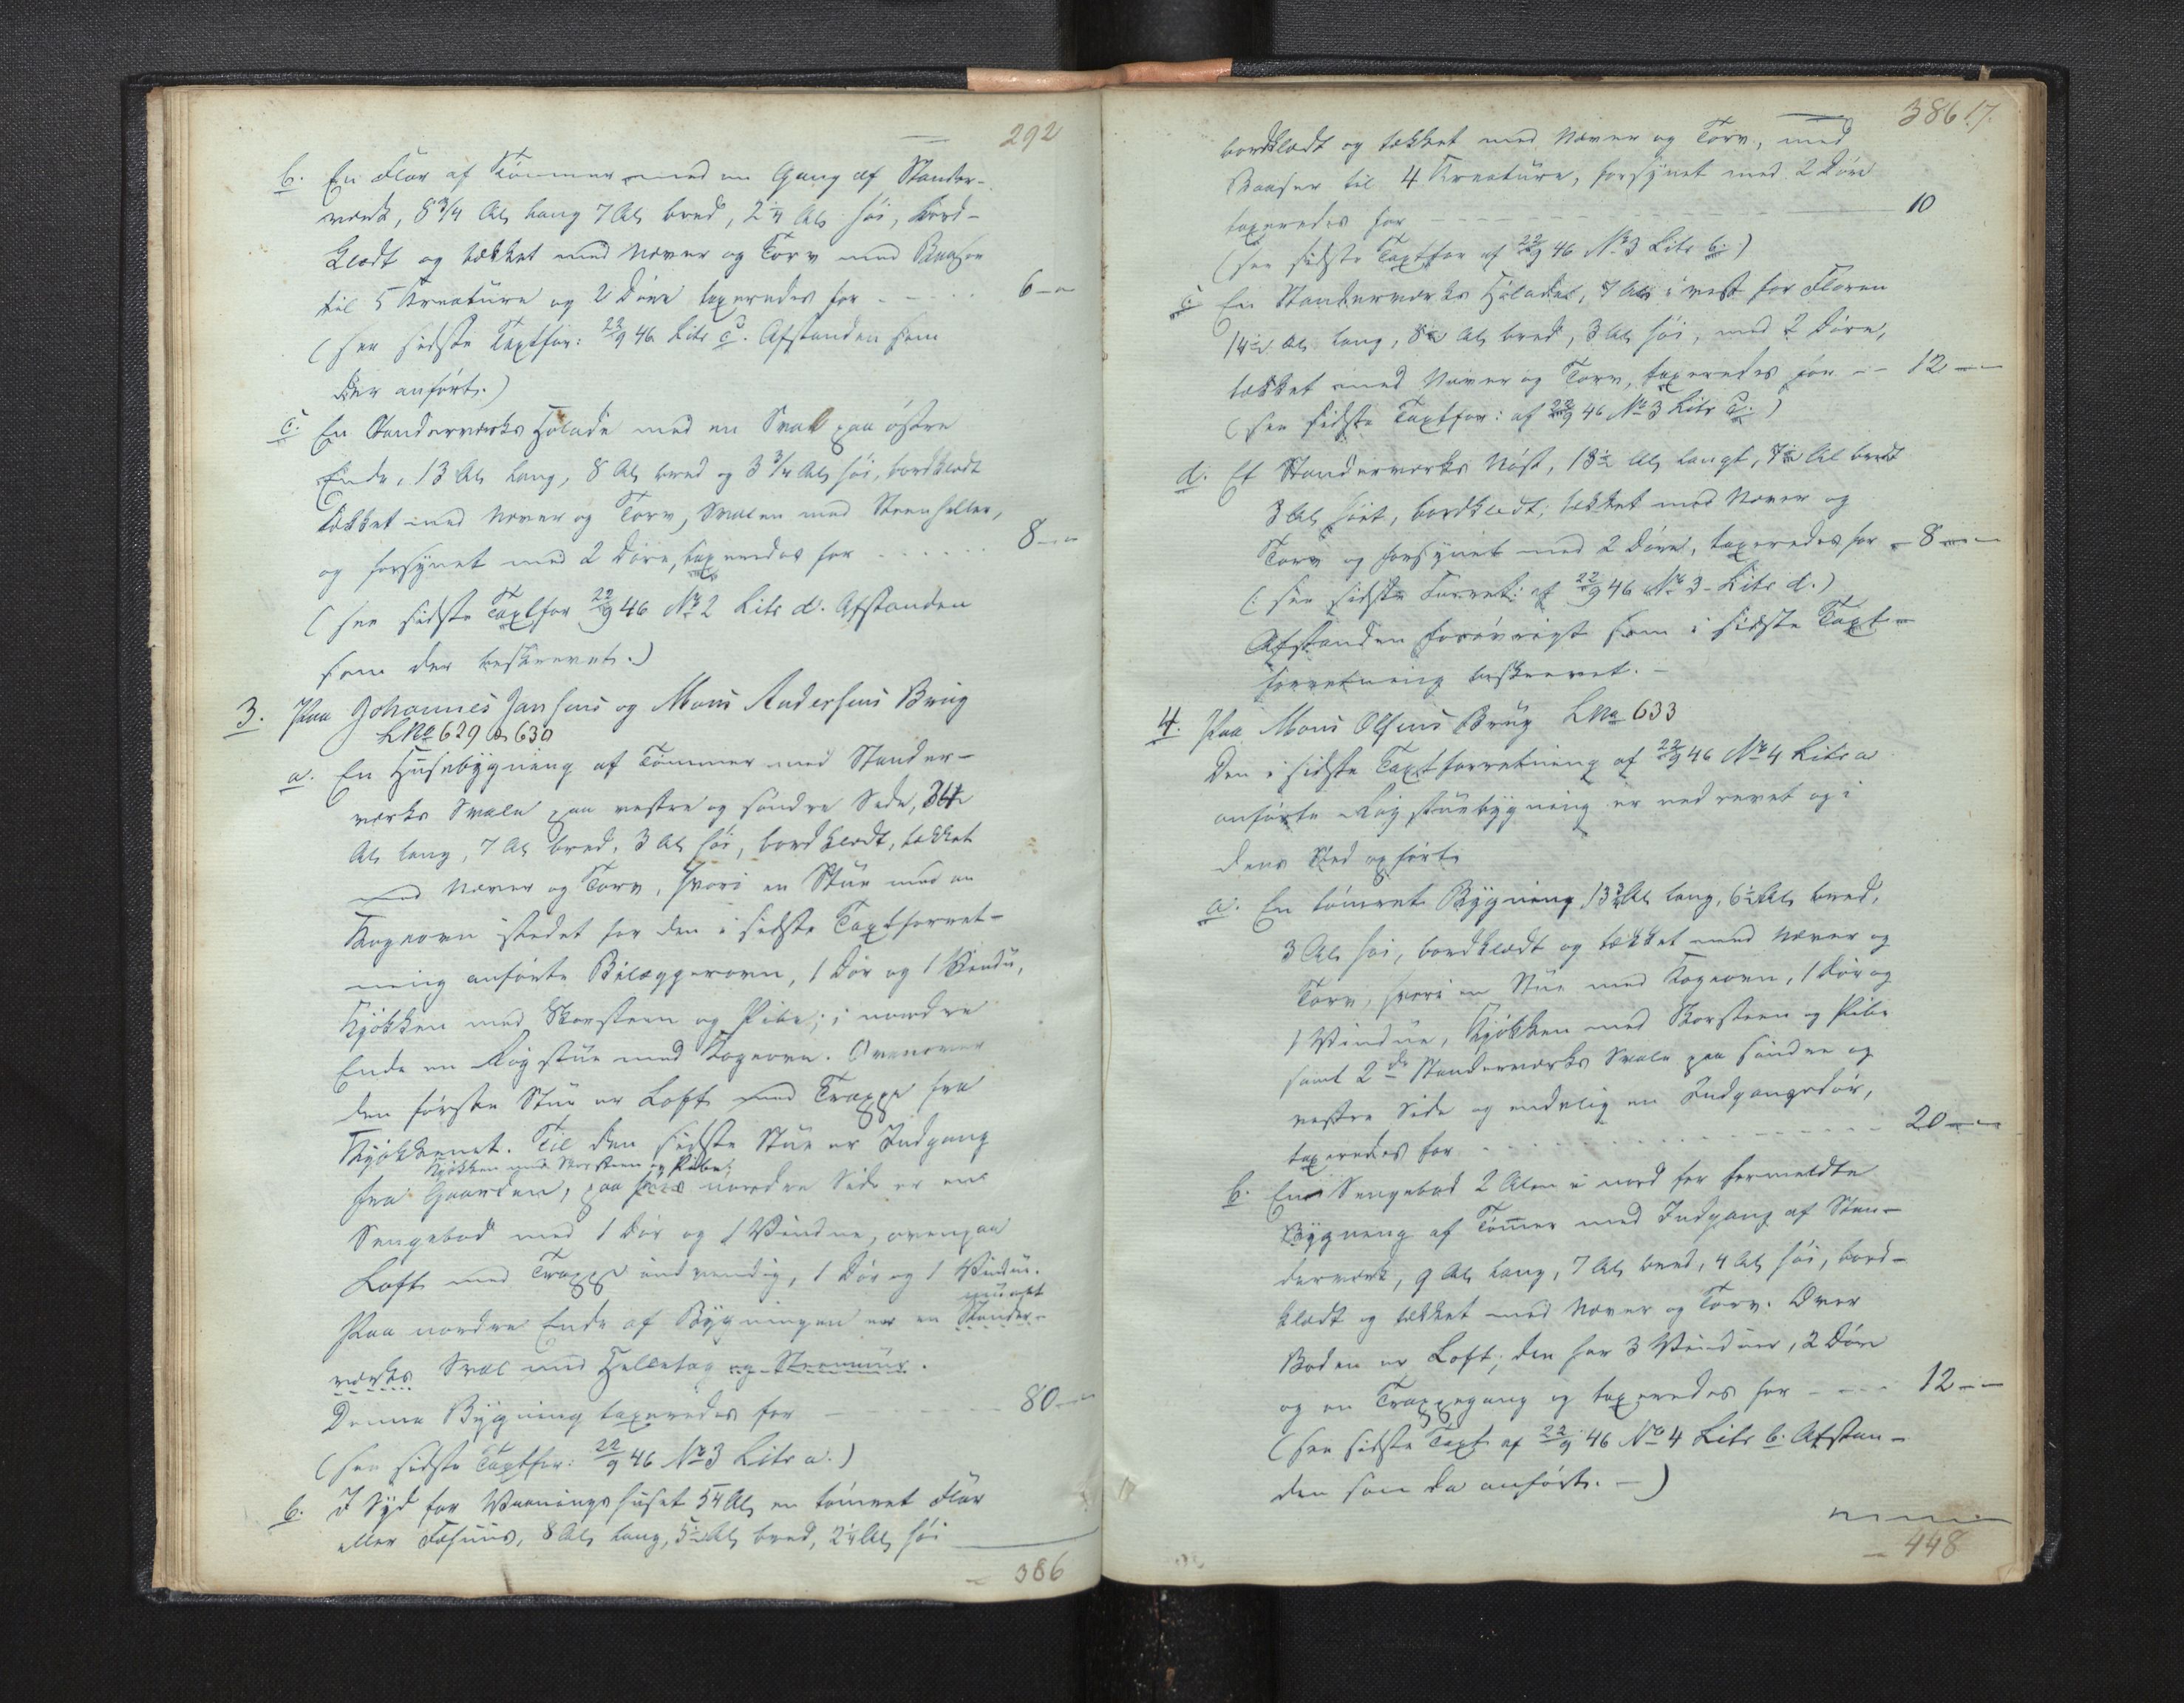 292
b. En Flor af Tömmer med en Gang af Stander-
værk, 8 3/4 Al lang 7 Al bred, 2 1/4 Al höi, bord-
klædt og tækket med Næver og Torv med Baaser
til 5 Kreature og 2 Döre taxeredes for - - - - 6 -
(see sidste Taxtfor: 22/9 46 Litr c. Afstanden som
der anfört.)
c. En Standerværks Hölade med en Sval paa östre
Ende, 13 Al lang, 8 Al bred og 3 3/4 Al höi, bordklædt
tækket med Næver og Torv, Svalen med Steenheller,
og forsynet med 2 Döre, taxeredes for - - - - - 8 -
(see sidste Taxtfor 22/9 46 No 2 Litr d. Afstanden
som der beskrevet.)
3. Paa Johannes Jansens og Mons Andersens Brug
LNo 629 & 630
a. En Husebygning af Tömmer med Stander-
værks Svale paa vestre og söndre Side, 24
Al lang, 7 Al bred, 3 Al höi, bordklædt, tækket
med Næver og Torv, hvori en Stue med en
Kogeovn istedet for den i sidste Taxtforret-
ning anförte Bilæggerovn, 1 Dör og 1 Vindu,
Kjökken med Skorsteen og Pibe; i nordre
Ende en Rögstue med Kogeovn. Ovenover
den förste Stue er Loft med Trappe fra
Kjökkenet. Til den sidste Stue er Indgang
Kjökken med Skorsteen og Pibe;
fra Gaarden, paa nordre Side er en
Sengebod med 1 Dör og 1 Vindue, ovenpaa
Loft med Trappe indvendig, 1 Dör og 1 Vindue.
muret
Paa nordre Ende af Bygningen er en Stander-
værks Sval med Helletag og Steenmur.
Denne Bygning taxeredes for - - - - 80 -
(see sidste Taxtfor: 22/9 46 No 3 Litr a.)
b. I Syd for Vaaningshuset 54 Al en tömret Flor
eller Fæhuus, 8 Al lang, 5 1/2 Al bred, 2 1/4 Al höi
386
386 17.
bordklædt og tækket med Næver og Torv, med
Baaser til 4 Kreature, forsynet med 2 Döre
taxeredes for - - - - 10
(see sidste Taxtfor af 22/9 46 No 3 Litr b.)
c En Standerværks Hölade, 7 Al i vest for Floren
14 1/2 Al lang, 8 1/2 Al bred, 3 Al höi, med 2 Döre,
tækket med Næver og Torv, taxeredes for - - 12 -
(see sidste Taxtfor: af 22/9 46 No 3 Litr c.)
d. Et Standerværks Nöst, 13 1/2 Al langt, 7 1/2 Al bredt
3 Al höit, bordklædt, tækket med Næver og
Torv og forsynet med 2 Döre, taxeredes for - 8 -
(: see sidste Forret: af 22/9 46 No 3 Litr d.)
Afstanden forövrigt som i sidste Taxt-
forretning beskrevet. -
4. Paa Mons Olsens Brug LNo 633
Den i sidste Taxtforretning af 22/9 46 No 4 Litr a
anförte Rögstuebygning er nedrevet og i
dens Sted opfört
a. En tömret Bygning 13 Al lang, 6 1/2 Al bred,
3 Al höi, bordklædt og tækket med Næver og
Torv, hvori en Stue med Kogeovn, 1 Dör og
1 Vindue, Kjökken med Skorsteen og Pibe
samt 2de Standerværks Svale paa söndre og
vestre Side og endelig en Indgangsdör,
taxeredes for - - - - 20 -
b. En Sengebod 2 Alen i nord for formeldte
Bygning af Tömmer med Indgang af Stan-
derværk, 9 Al lang, 7 Al bred, 4 Al höi, bord-
klædt og tækket med Næver og Torv. Over
Boden er Loft; den har 3 Vinduer, 2 Döre
og en Trappegang og taxeredes for - - - 12 -
(see sidste Taxt af 22/9 46 No 4 Litr b. Afstan-
den som da anfört. -)
448